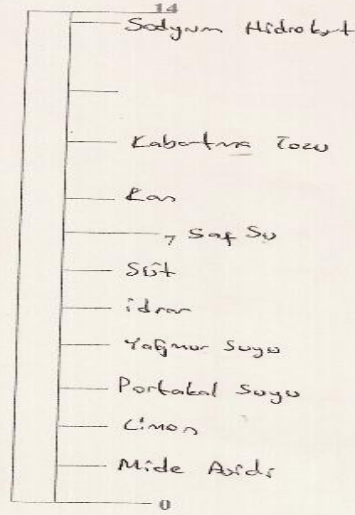 14
Sodyum Hidroksit
Kabartma Tozu
Kan
7 Saf Su
Süt
idrar
Yağmur Suyu
Portakal Suyu
Limon
Mide Asidi
0